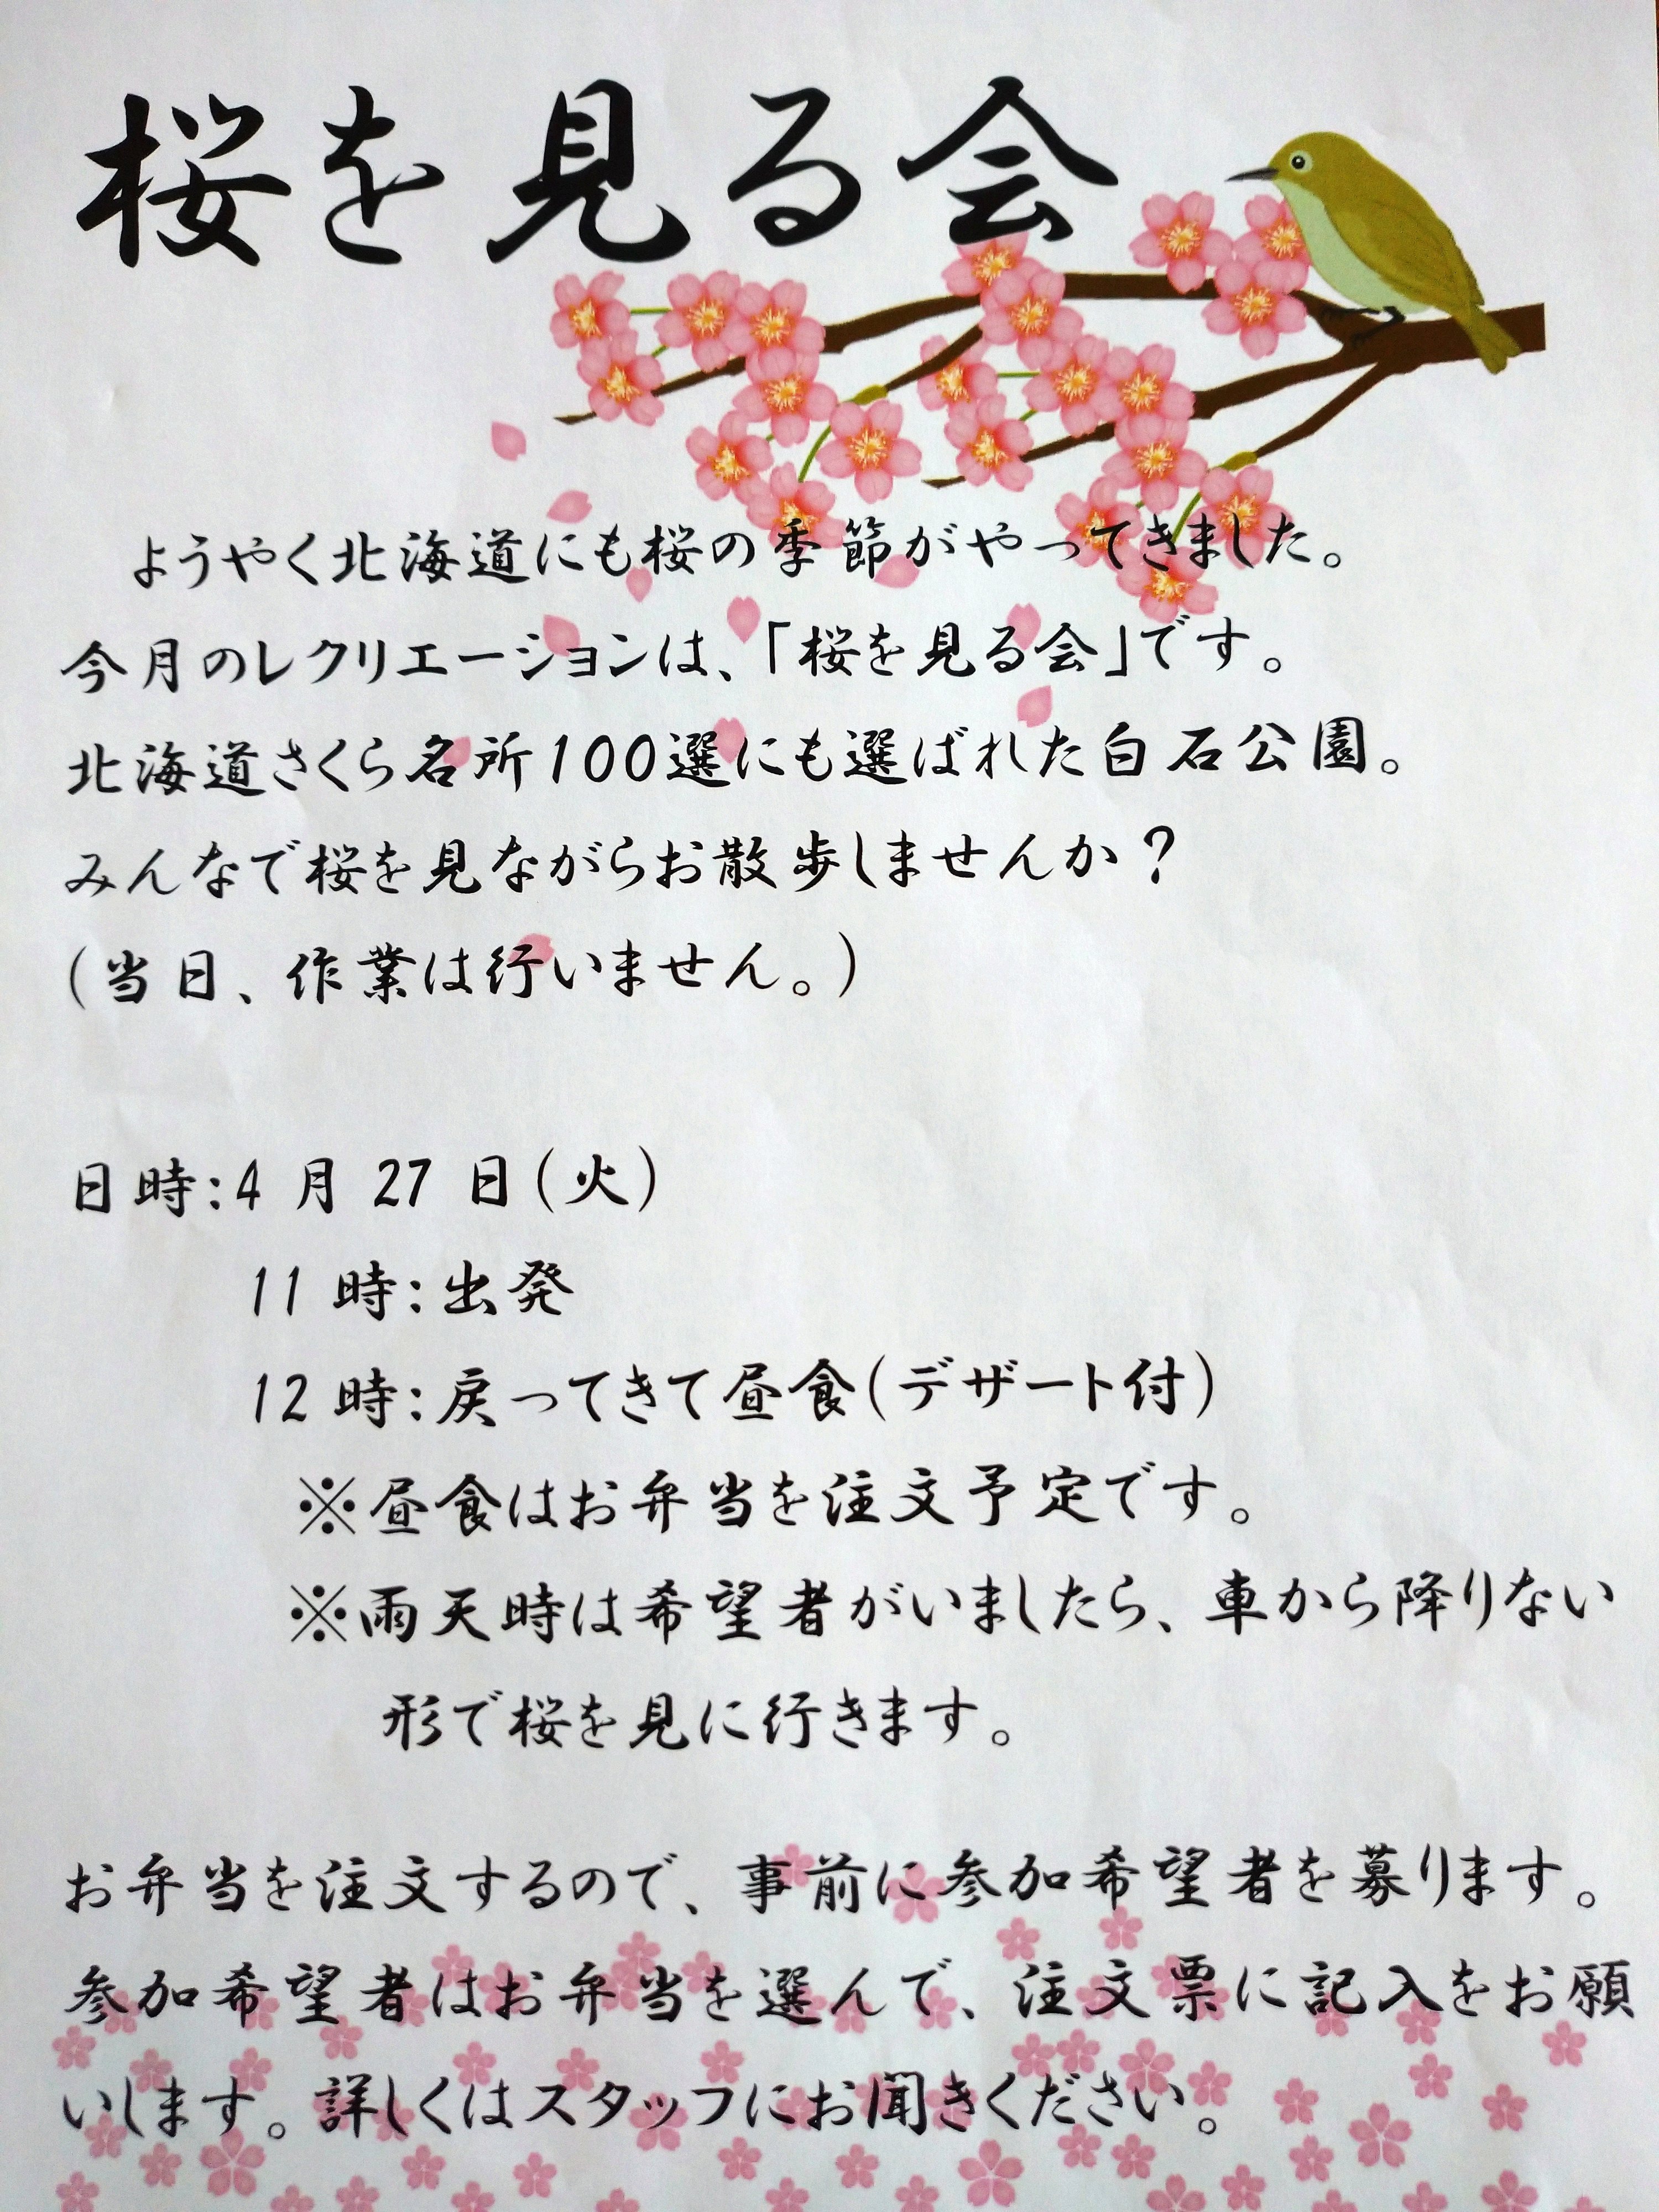 桜を見る会
ようやく北海道にも桜の季節がやってきました。
今月のレクリエーションは、「桜を見る会」です。
北海道さくら名所100選にも選ばれた白石公園。
みんなで桜を見ながらお散歩しませんか？
（当日、作業は行いません。）
日時：4 月 27 日（火）
11 時：出発
12 時：戻ってきて昼食（デザート付）
※昼食はお弁当を注文予定です。
※雨天時は希望者がいましたら、車から降りない
形で桜を見に行きます。
お弁当を注文するので、事前に参加希望者を募ります。
参加希望者はお弁当を選んで、注文票に記入をお願
いします。詳しくはスタッフにお聞きください。